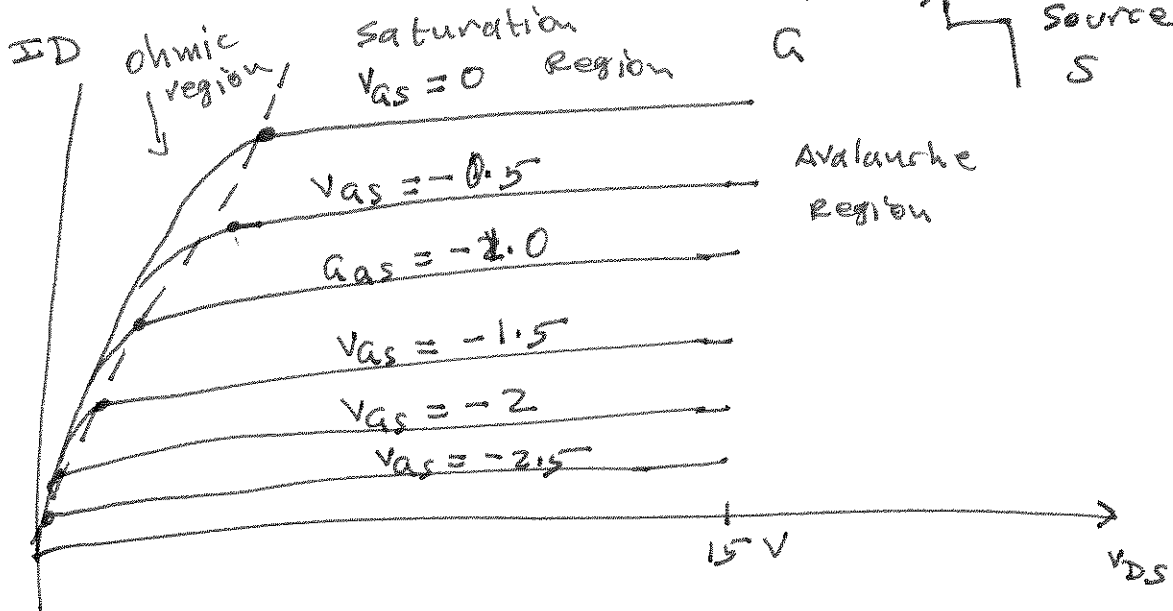 ID
ohmic
region
Saturation
Region
G
Source
S
VGS = 0
Avalanche
Region
VGS = -0.5
GGS = -1.0
VGS = -1.5
VGS = -2
VGS = -2.5
15 V
VDS